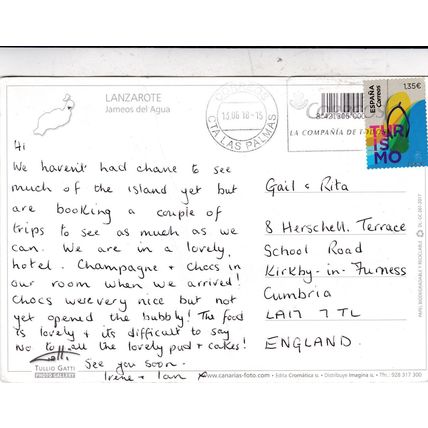 LANZAROTE
Jameos del Agua
13 06 18-15
CTA LAS PALMAS
LA COMPAÑÍA DE
ESPAÑA
Correos
1,35€
TURISMO
Hi
We haven't had chance to see
much of the island yet but
are booking a couple of
trips to see as much as we
can. We are in a lovely
hotel. Champagne + chocs in
our room when we arrived!
Chocs were very nice but not
yet opened the bubbly! The food
is lovely & its difficult to say
No to all the lovely pud + cakes!
See you soon.
Irene + Ian x
Gail & Rita
8 Herschell. Terrace
School Road
Kirkby-in-Furness
Cumbria
LA17 7TL
ENGLAND.
TULLIO GATTI
PHOTO GALLERY
www.canarias-foto.com • Edita Cromática • Distribuye Imagina • Tf.: 928 317 300